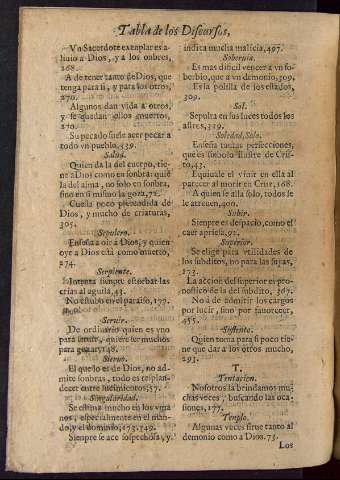 Tabla de los Discursos,
Vn Sacerdote exemplar es a-
liuio a Dios, y a los onbres,
268.
A de tener tanto de Dios, que
tenga para si, y para los otros,
270.
Algunos dan vida a otros,
y se quedan ellos muertos.
270.
Su pecado suele acer pecar a
todo vn pueblo. 339.
Salud.
Quien da la del cuerpo, tiene
a Dios como en sonbra: quien
la del alma, no solo en sonbra,
sino en si mismo la goza, 72.
Cuesta poco
Dios, y mucho de criaturas,
305.
Sepulcro.
Enseña a oir a Dios, y quien
oye a Dios està como muerto,
374.
Serpiente.
Intenta sienpre estorbar las
crias al aguila, 43.
No estubo en el paraiso, 177.
Seruir.
De ordinario quien es vno
para seruir, quiere ser muchos
para gozar, 148.
Sieruo.
El que lo es de Dios, no ad-
mite sonbras, todo es resplan-
decer entre lucimientos, 57.
Singularidad.
Se estima mucho en los viga
nos, especialmente en el man-
do, y el dominio, 173. 549.
Sienpre se ace sospechosa, y
indica mucha malicia, 497.
Soberuia.
Es mas dificil vencer a vn so-
berbio, que a vn demonio, 309.
Es la polilla de los estados,
309.
Sol.
Sepulta en sus luces todos los
astros, 339.
Soledad, Solo.
Enseña tantas perfecciones,
que es sinbolo ilustre de Cris-
to, 42.
Equiuale el viuir en ella al
parecer al morir en Cruz, 168.
A quien se alla solo, todos se
le atreuen, 400.
Subir.
Sienpre es despacio, como el
caer apriesa, 92.
Superior.
Se elige para vtilidades de
los subditos, no para las suyas,
173.
La accion del superior es pro-
nostico de la del subdito, 367.
No a de admitir los cargos
por lucir, sino por fauorecer,
455.
Sustento.
Quien toma para si poco tie-
ne que dar a los otros mucho,
293.
T.
Tentacion.
Nosotros la brindamos mu-
chas veces, buscando las oca-
siones, 177.
Templo.
Algunas veces sirue tanto al
demonio como a Dios. 73.
Los